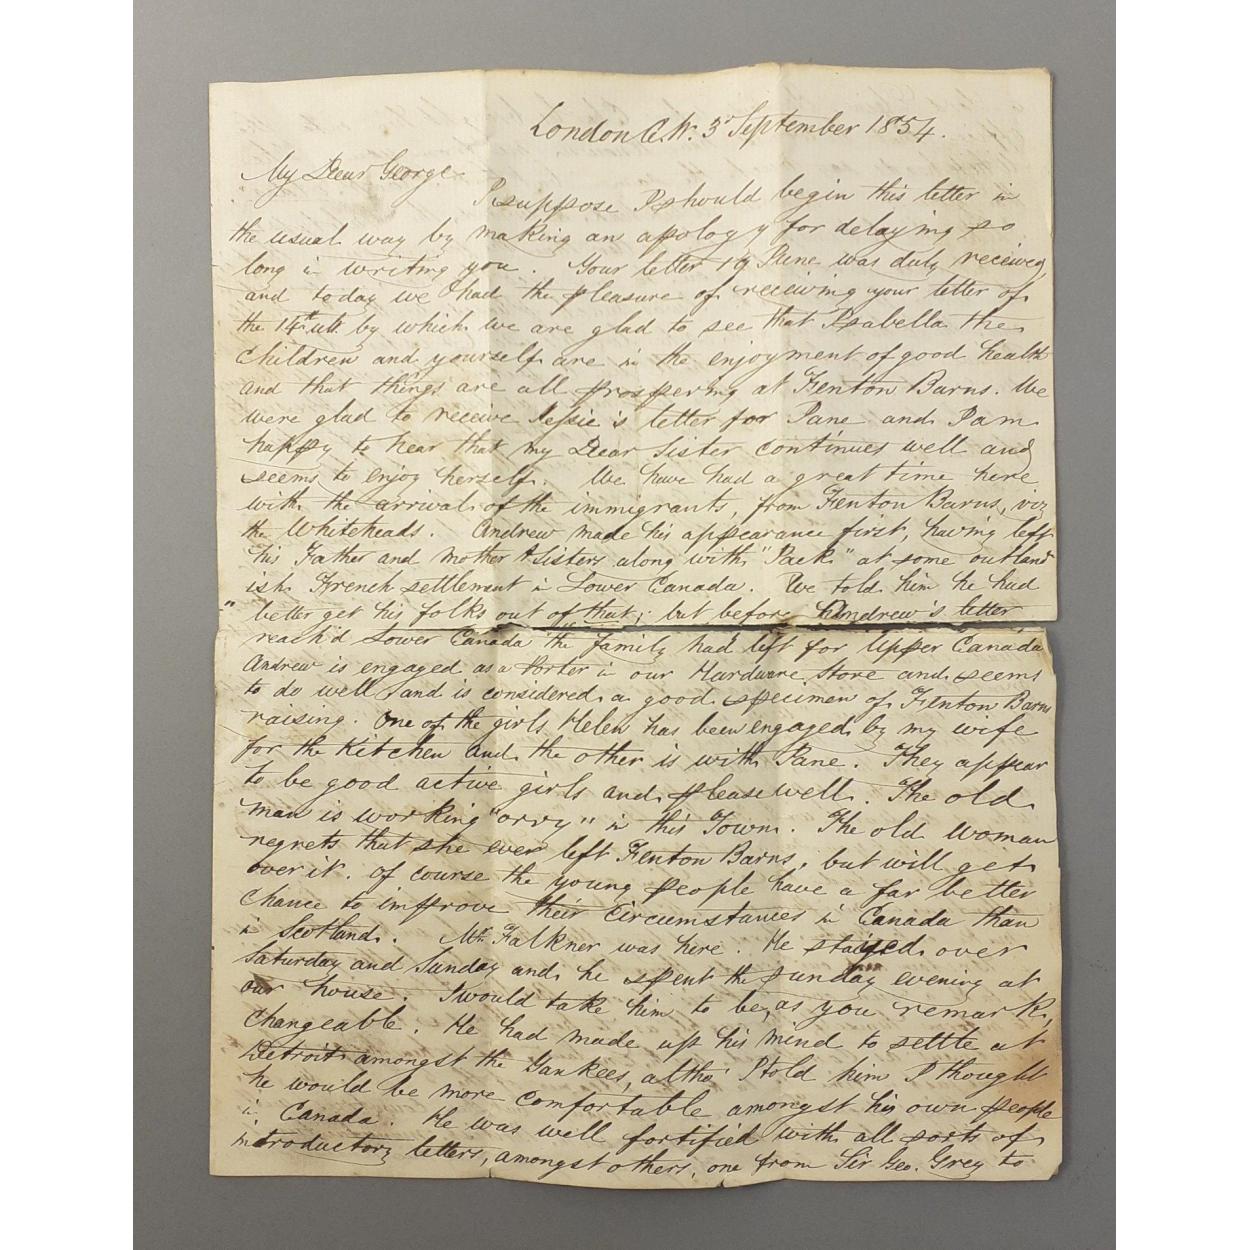 London C.W. 3d September 1854.
My Dear George
I suppose I should begin this letter in
the usual way by making an apology for delaying so
long in writing you. Your letter 19 June was duly received
and today we had the pleasure of receiving your letter of
the 14th ult by which we are glad to see that Isabella the
Children and yourself are in the enjoyment of good health
and that things are all prospering at Fenton Barns. We
were glad to receive Jessie's letter for Jane and I am
happy to hear that my Dear Sister continues well and
seems to enjoy herself. We have had a great time here
with the arrival of the immigrants, from Fenton Barns, viz
the Whiteheads. Andrew made his appearance first, having left
his Father and mother & sisters along with "Pack" at some outland
ish French settlement in Lower Canada. We told him he had
better get his folks out of that; but before Andrew's letter
reach'd Lower Canada the family had left for Upper Canada
Andrew is engaged as a Porter in our Hardware Store and seems
to do well and is considered a good specimen of Fenton Barns
raising. One of the girls Helen has been engaged by my wife
for the Kitchen and the other is with Jane. They appear
to be good active girls and please well. The old
man is working "orvy" in this Town. The old woman
regrets that she ever left Fenton Barns, but will get
over it. Of course the young people have a far better
Chance to improve their Circumstances in Canada than
in Scotland. Mr. Falkner was here. He stayed over
Saturday and Sunday and he spent the Sunday evening at
our house. I would take him to be, as you remark,
Changeable. He had made up his mind to settle at
Detroit amongst the Yankees, altho' I told him I thought
he would be more comfortable amongst his own people
in Canada. He was well fortified with all sorts of
introductory letters, amongst others, one from Sir Geo. Grey to